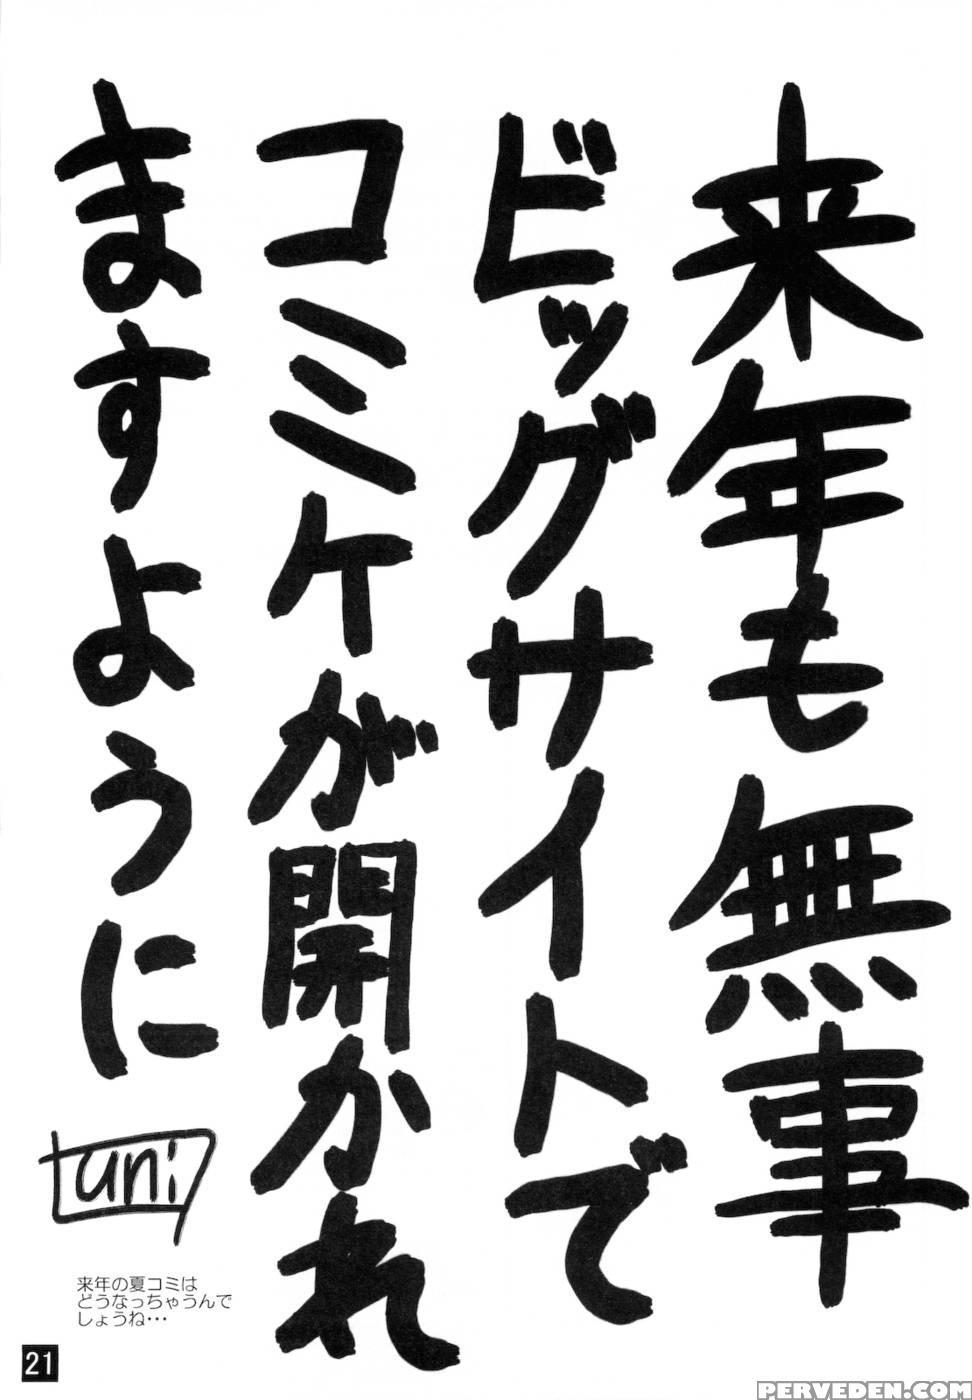 来年も無事
ビッグサイトで
コミケが開かれ
ますように
tani
来年の夏コミは
どうなっちゃうんで
しょうね・・・
21
PERVEDEN.COM